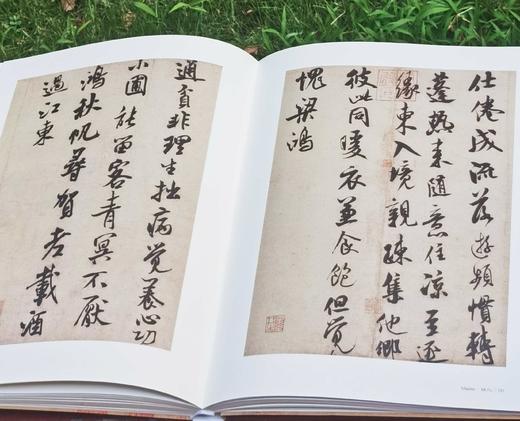 仕倦成流落游頻慣轉
蓬熱来隨意住涼至逐
緣東入境親疎集他鄉
彼此同暖衣兼食飽但覺
愧梁鴻
通貧非理生拙病覺養心功
小圃能留客青冥不厭
鴻秋帆尋賀老載酒
過江東